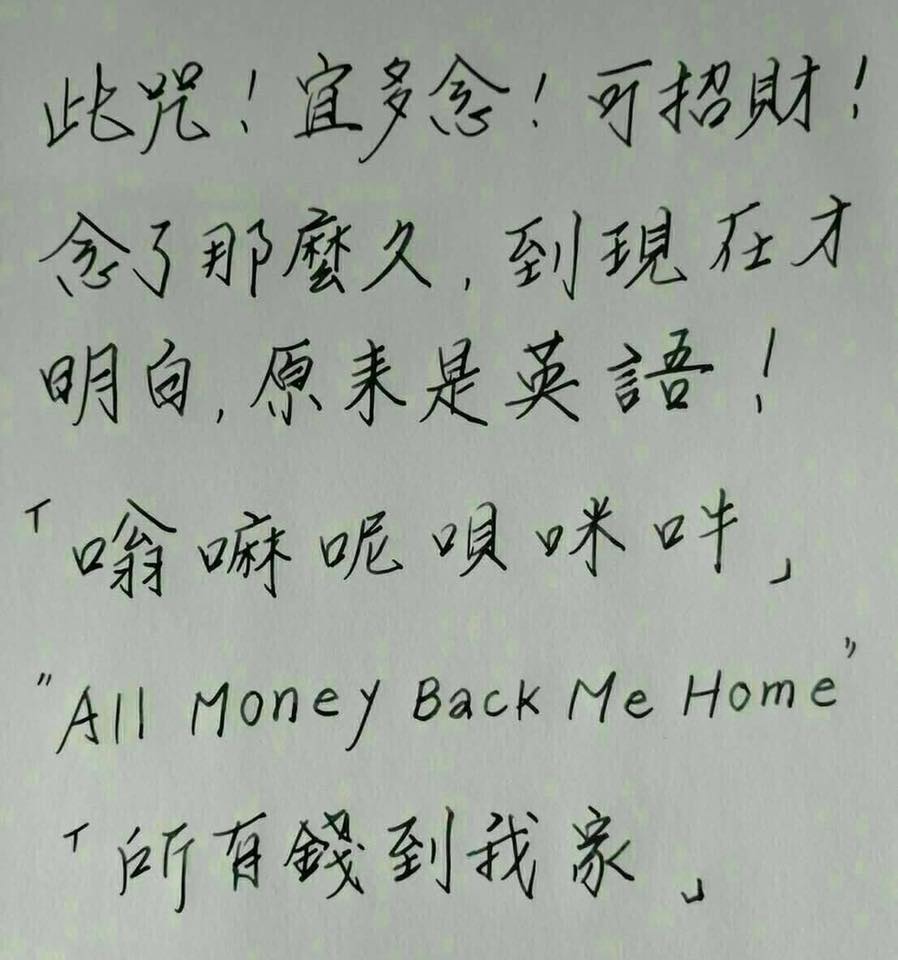 此咒！宜多念！可招財！
念了那麼久，到現在才
明白，原来是英語！
「嗡嘛呢唄咪吽」
"All Money Back Me Home"
「所有錢到我家」